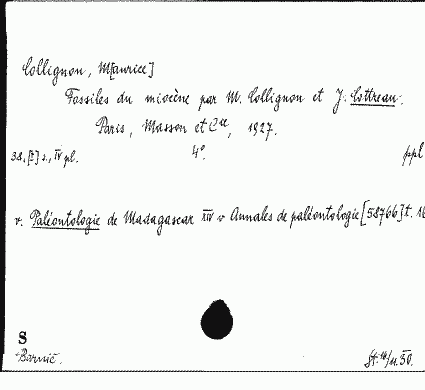 Collignon, M[aurice]
Fossiles du miocène par M. Collignon et J. Cottreau.
Paris, Masson et Cie, 1927.
38, [2] s., IV pl. 4°. ppl
v. Paléontologie de Madagascar XIV v Annales de paléontologie [58766] t. 16
S
Barvić.